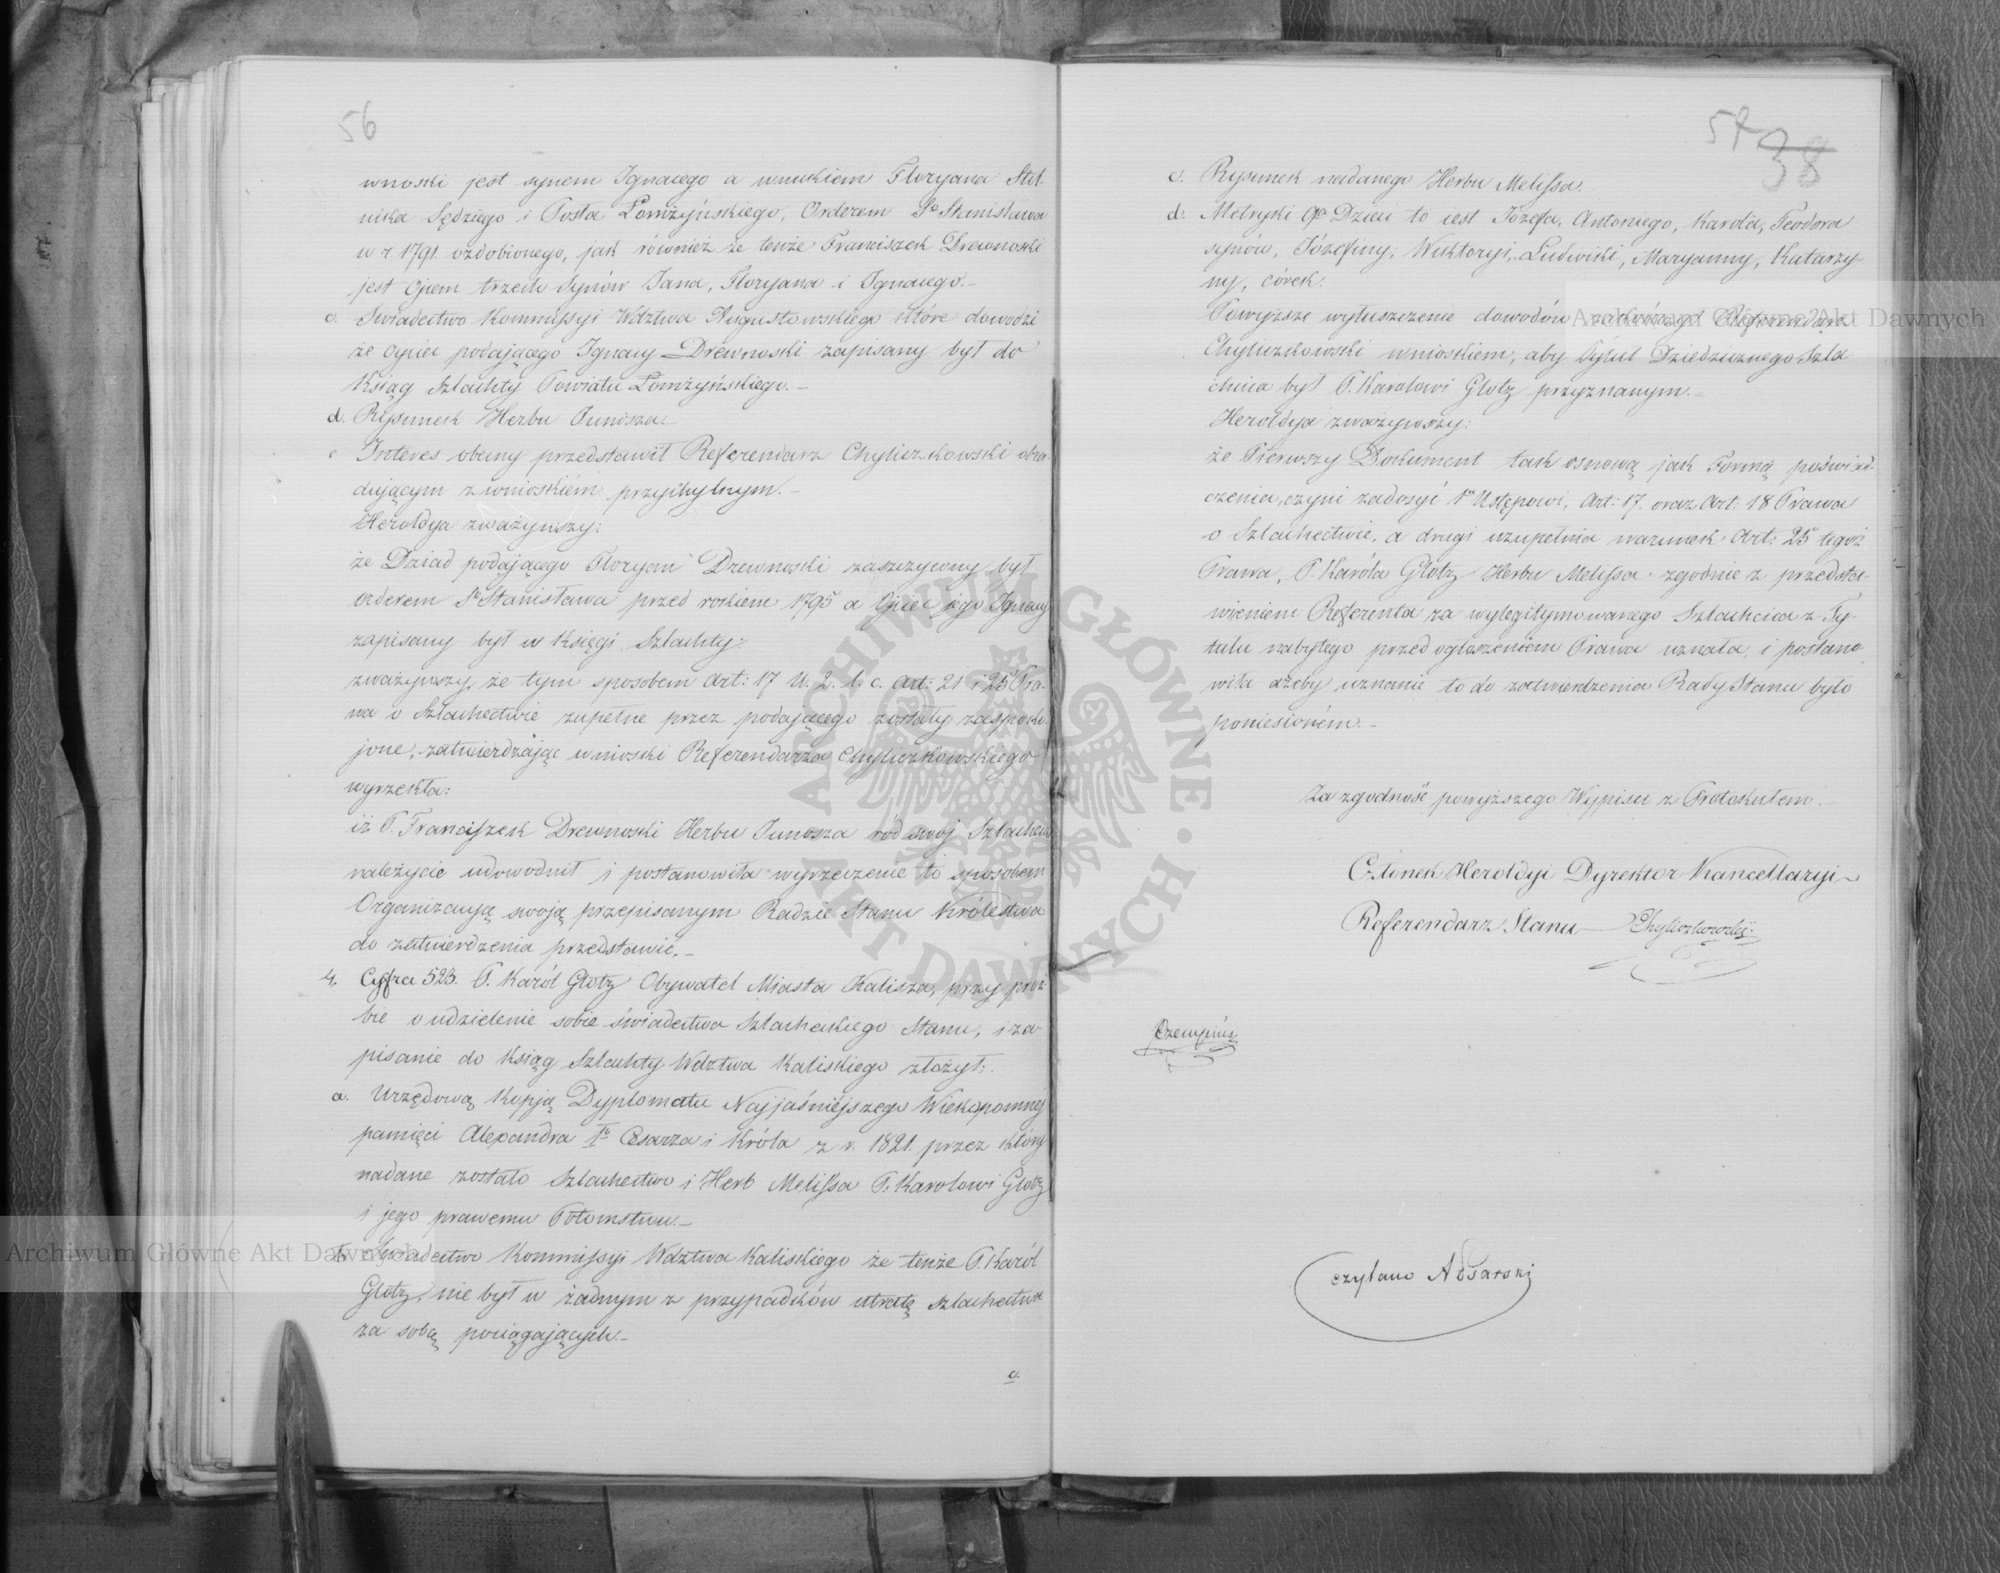 56
wnoski jest synem Ignacego a wnukiem Floryana Stol-
nika Sędziego i Posta Łomżyńskiego, Orderem Sgo Stanisława
w r 1791 ozdobionego, jak również że tenże Franciszek Drewnoski
jest ojcem trzech Synów Jana, Floryana i Ignacego.-
c. Świadectwo Kommissyi Wdztwa Augustowskiego które dowodzi
że ojciec podającego Ignacy Drewnoski zapisany był do
Ksiąg Szlachty Powiatu Łomżyńskiego.-
d. Rysunek Herbu Junosza.
Interes obecny przedstawił Referendarz Chyliczkowski obra-
dującym z wnioskiem przychylnym.-
Heroldya zważywszy:
że Dziad podającego Floryan Drewnoski zaszczycony był
orderem Sgo Stanisława przed rokiem 1795 a Ojciec jego Ignacy
zapisany był w Księgi Szlachty:
zważywszy, że tym sposobem Art: 17 U. 2. l. c. Art: 21 i 25 Pra-
wa o Szlachectwie zupełne przez podającego zostały zaspoko-
jone, zatwierdzając wnioski Referendarza Chyliczkowskiego
wyrzekła:
iż P. Franciszek Drewnoski Herbu Junosza ród swój Szlachecki
należycie udowodnił i postanowiła wyrzeczenie to sposobem
Organizacyą swoją przepisanym Radzie Stanu Królestwa
do zatwierdzenia przedstawić.-
4. Cyfra 523. P. Karól Glotz Obywatel Miasta Kalisza, przy proź-
bie o udzielenie sobie świadectwa Szlacheckiego Stanu, i za-
pisanie do Ksiąg Szlachty Wdztwa Kaliskiego złożył:
a. Urzędową Kopją Dyplomatu Najjaśniejszego Wiekopomnej
pamięci Alexandra Igo Cesarza i Króla z r. 1821. przez który
nadane zostało Szlachectwo i Herb Melissa P. Karolowi Glotz
i jego prawemu Potomstwu.-
b. Świadectwo Kommissyi Wdztwa Kaliskiego że tenże P. Karól
Glotz, nie był w żadnym z przypadków utratę szlachectwa
za sobą pociągających.-
c.
57 38
c. Rysunek nadanego Herbu Melissa.
d. Metryki 9u Dzieci to iest Józefa, Antoniego, Karóla, Teodora
synów, Józefiny, Wiktoryi, Ludwiki, Maryanny, Katarzy-
ny, córek.
Powyższe wyłuszczenie dowodów zakończył Referendarz
Chyliczkowski wnioskiem, aby tytuł Dziedzicznego Szla-
chcica był P. Karolowi Glotz przyznanym.-
Heroldya zważywszy:
że Pierwszy Dokument tak osnową jak Formą poświad-
czenia, czyni zadosyć 1mu Ustępowi, Art: 17. oraz Art: 18 Prawa
o Szlachectwie, a drugi uzupełnia warunek Art: 25 tegoż
Prawa, P. Karóla Glotz Herbu Melissa zgodnie z przedsta-
wieniem Referenta za wylegitymowanego Szlachcica z Ty-
tułu nabytego przed ogłoszeniem Prawa uznała, i postano-
wiła ażeby uznanie to do zatwierdzenia Rady Stanu było
poniesioném.-
Za zgodność powyższego Wypisu z Protokułem.
Członek Heroldyi Dyrektor Kancellaryi
Referendarz Stanu Chyliczkowski
czytano
Archiwum Główne Akt Dawnych
Archiwum Główne Akt Dawnych
ARCHIWUM GŁÓWNE AKT DAWNYCH